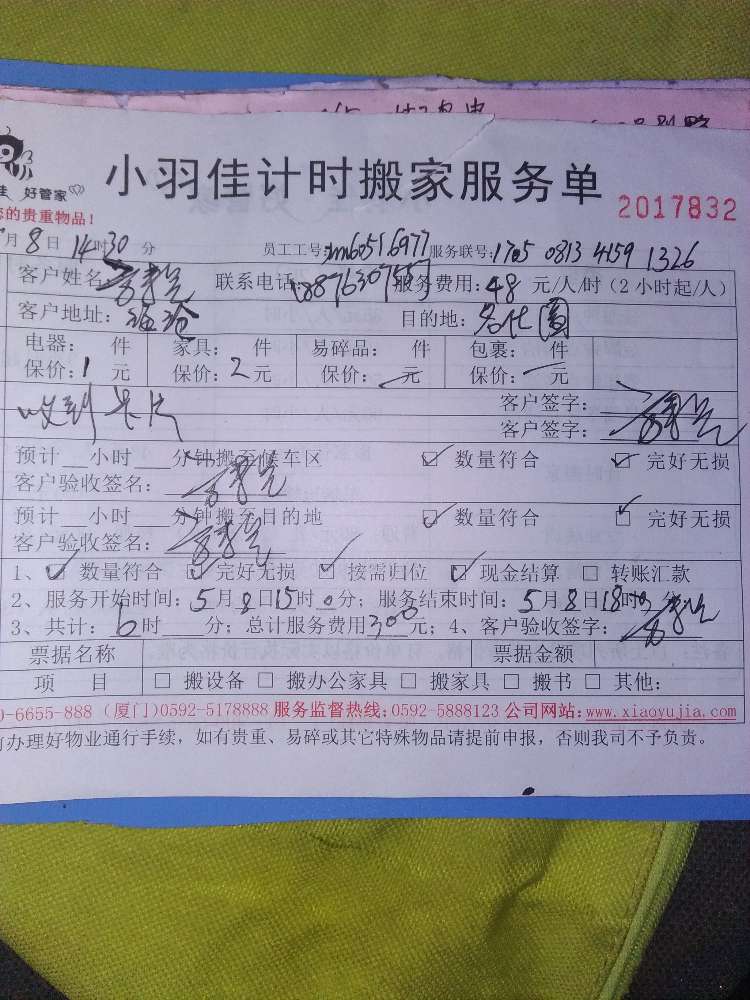 小羽佳计时搬家服务单
2017832
佳 好管家
您的贵重物品！
月8日14时30分 员工工号: 服务联号:1705 0813 4159 1326
客户姓名 联系电话: 服务费用:48元/人/时（2小时起/人）
客户地址: 目的地:
电器: 件 家具: 件 易碎品: 件 包裹: 件
保价:1元 保价:2元 保价: 元 保价: 元
收到卡片 客户签字:
客户签字:
预计__小时___分钟搬至候车区 ☑ 数量符合 ☑ 完好无损
客户验收签名:
预计__小时___分钟搬至目的地 ☑ 数量符合 ☑ 完好无损
客户验收签名:
1、☑ 数量符合 ☑ 完好无损 ☑ 按需归位 ☑ 现金结算 □ 转账汇款
2、服务开始时间:5月8日15时0分；服务结束时间:5月8日18时 分
3、共计:6时____分；总计服务费用300元；4、客户验收签字:
票据名称 票据金额
项 目 □ 搬设备 □ 搬办公家具 □ 搬家具 □ 搬书 □ 其他:
0-6655-888 (厦门)0592-5178888 服务监督热线:0592-5888123 公司网站:www.xiaoyujia.com
前办理好物业通行手续，如有贵重、易碎或其它特殊物品请提前申报，否则我司不予负责。